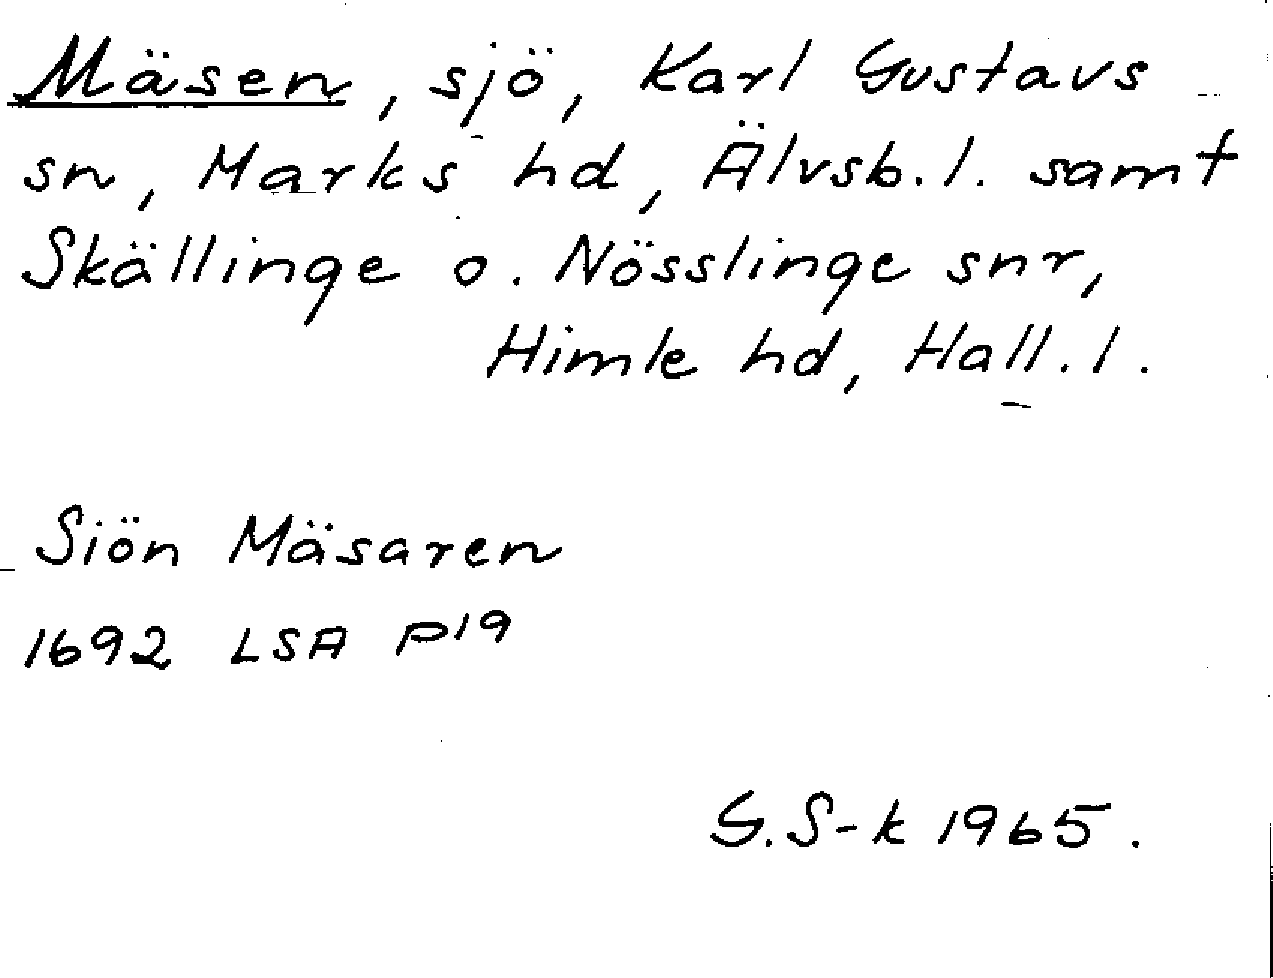 Mäsen, sjö, Karl Gustavs
sn, Marks hd, Älvsb. l. samt
Skällinge o. Nösslinge snr,
Himle hd, Hall. l.
Siön Mäsaren
1692 LSA P19
G. S-k 1965.